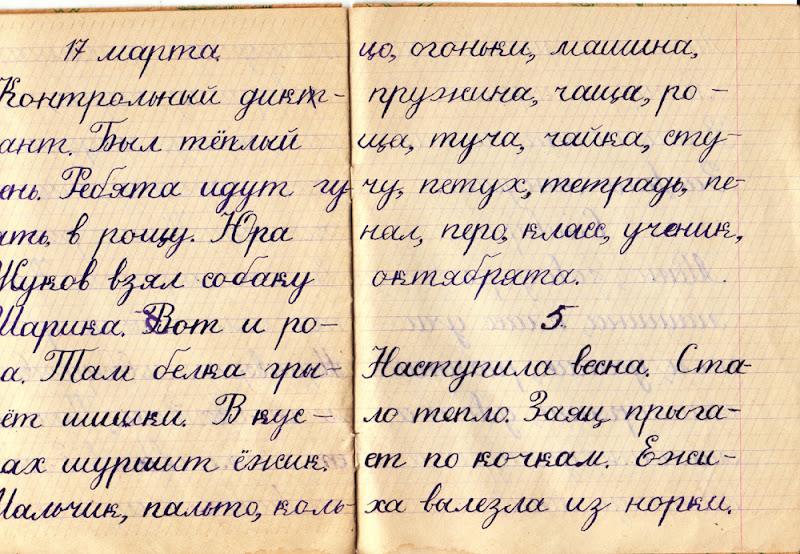 17 марта.
Контрольный дикт-
ант. Был тёплый
ень. Ребята идут гу-
ять в рощу. Юра
Жуков взял собаку
Шарика. Вот и ро-
а. Там белка гры-
ёт шишки. В кус-
ах шуршит ёжик.
Мальчик, пальто, коль-
цо, огоньки, машина,
пружина, чаща, ро-
ща, туча, чайка, сту-
чу, петух, тетрадь, пе-
нал, перо, класс, ученик,
октябрята.
5
Наступила весна. Ста-
ло тепло. Заяц прыга-
ет по кочкам. Ежи-
ха вылезла из норки.